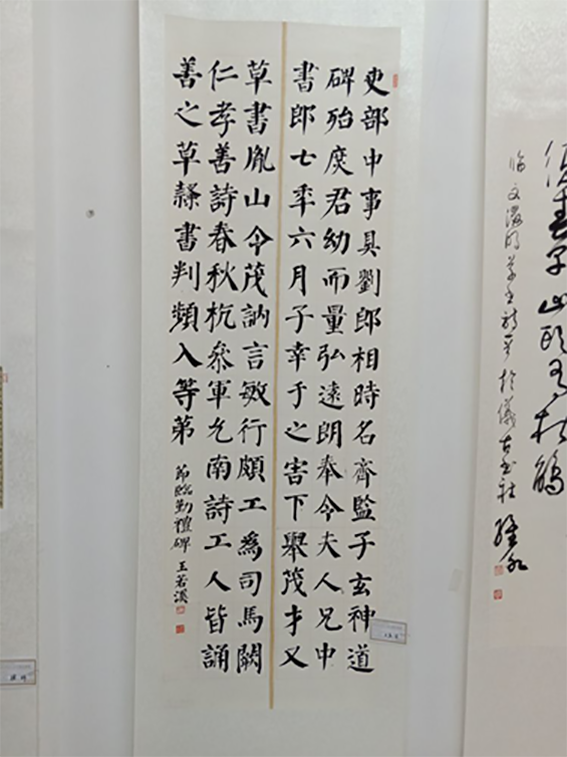 吏部中事具劉郎相時名齊監子玄神道
碑殆庾君幼而量弘遠朗奉令夫人兄中
書郎七年六月子幸于之害下舉茂才又
草書胤山令茂訥言敏行頗工為司馬闕
仁孝善詩春秋杭叅軍允南詩工人皆誦
善之草隸書判頻入等第
節臨勤禮碑 王若溪
臨文徵明草書詩 於儀古書社